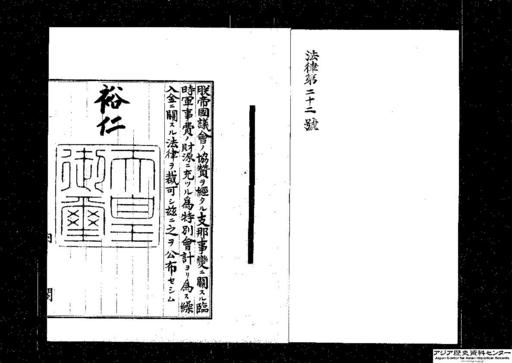 法律第二十二號
朕帝國議會ノ協贊ヲ經タル支那事變ニ關スル臨
時軍事費ノ財源ニ充ツル爲特別會計ヨリ爲ス繰
入金ニ關スル法律ヲ裁可シ玆ニ之ヲ公布セシム
裕仁
天皇
御璽
内
閣
アジア歴史資料センター
Japan Center for Asian Historical Records